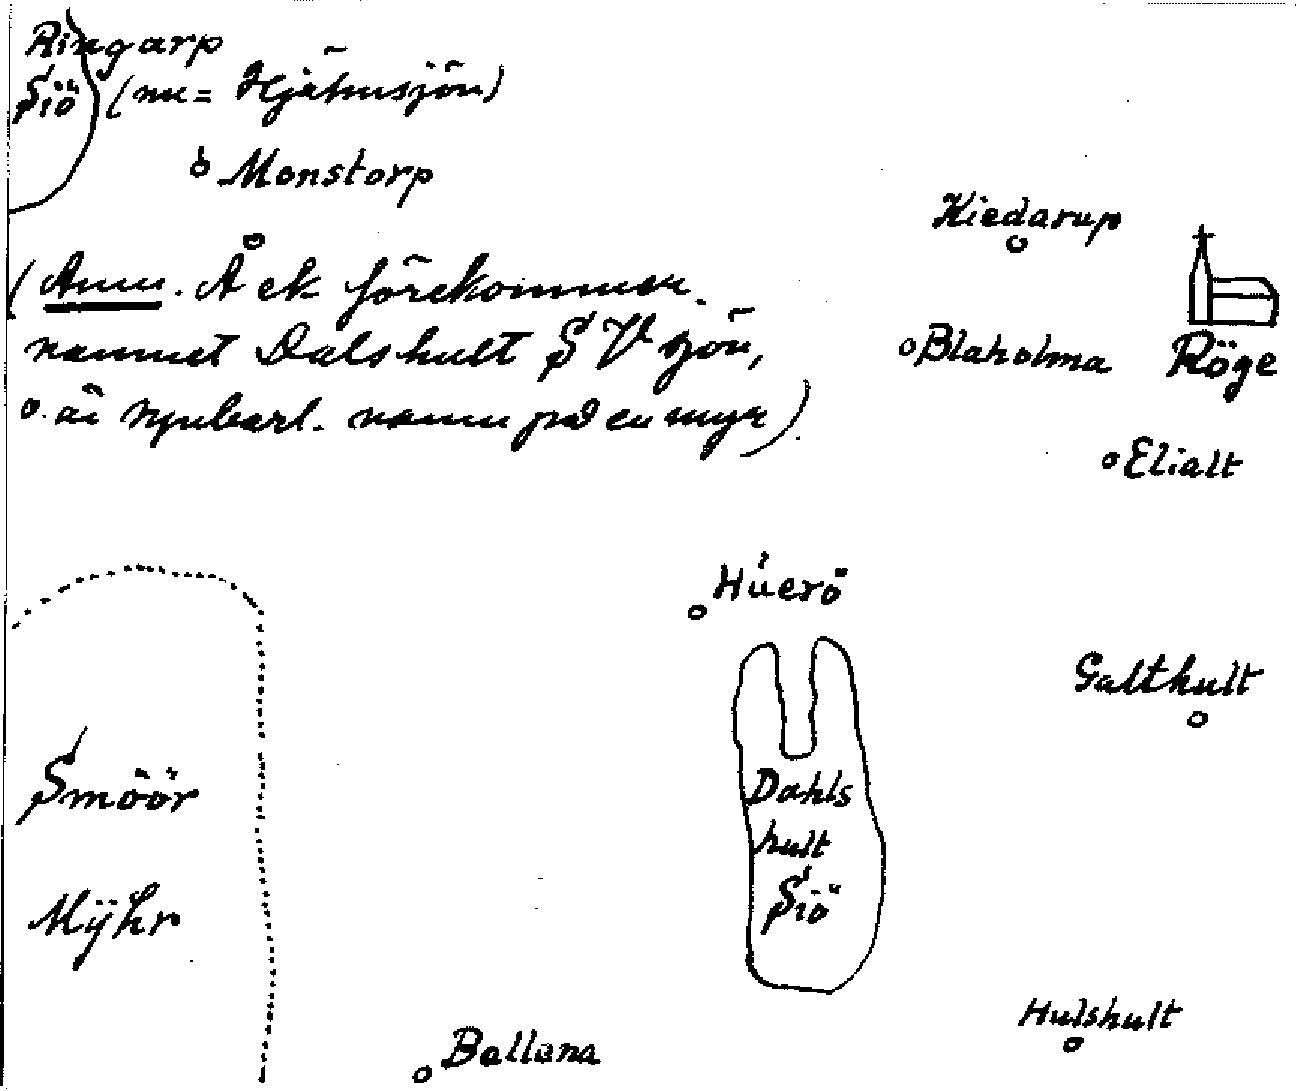 Ringarp
Siö (nu = Hjähusjön)
Monstorp
Kiedarup
(Anm. Å ek förekommer
namnet Dalshult SV sjön,
o. är nu namn på en myr)
Blaholma
Röge
Elialt
Húerö
Galthult
Smöör
Mÿhr
Dahls
hult
Siö
Hulshult
Bellana